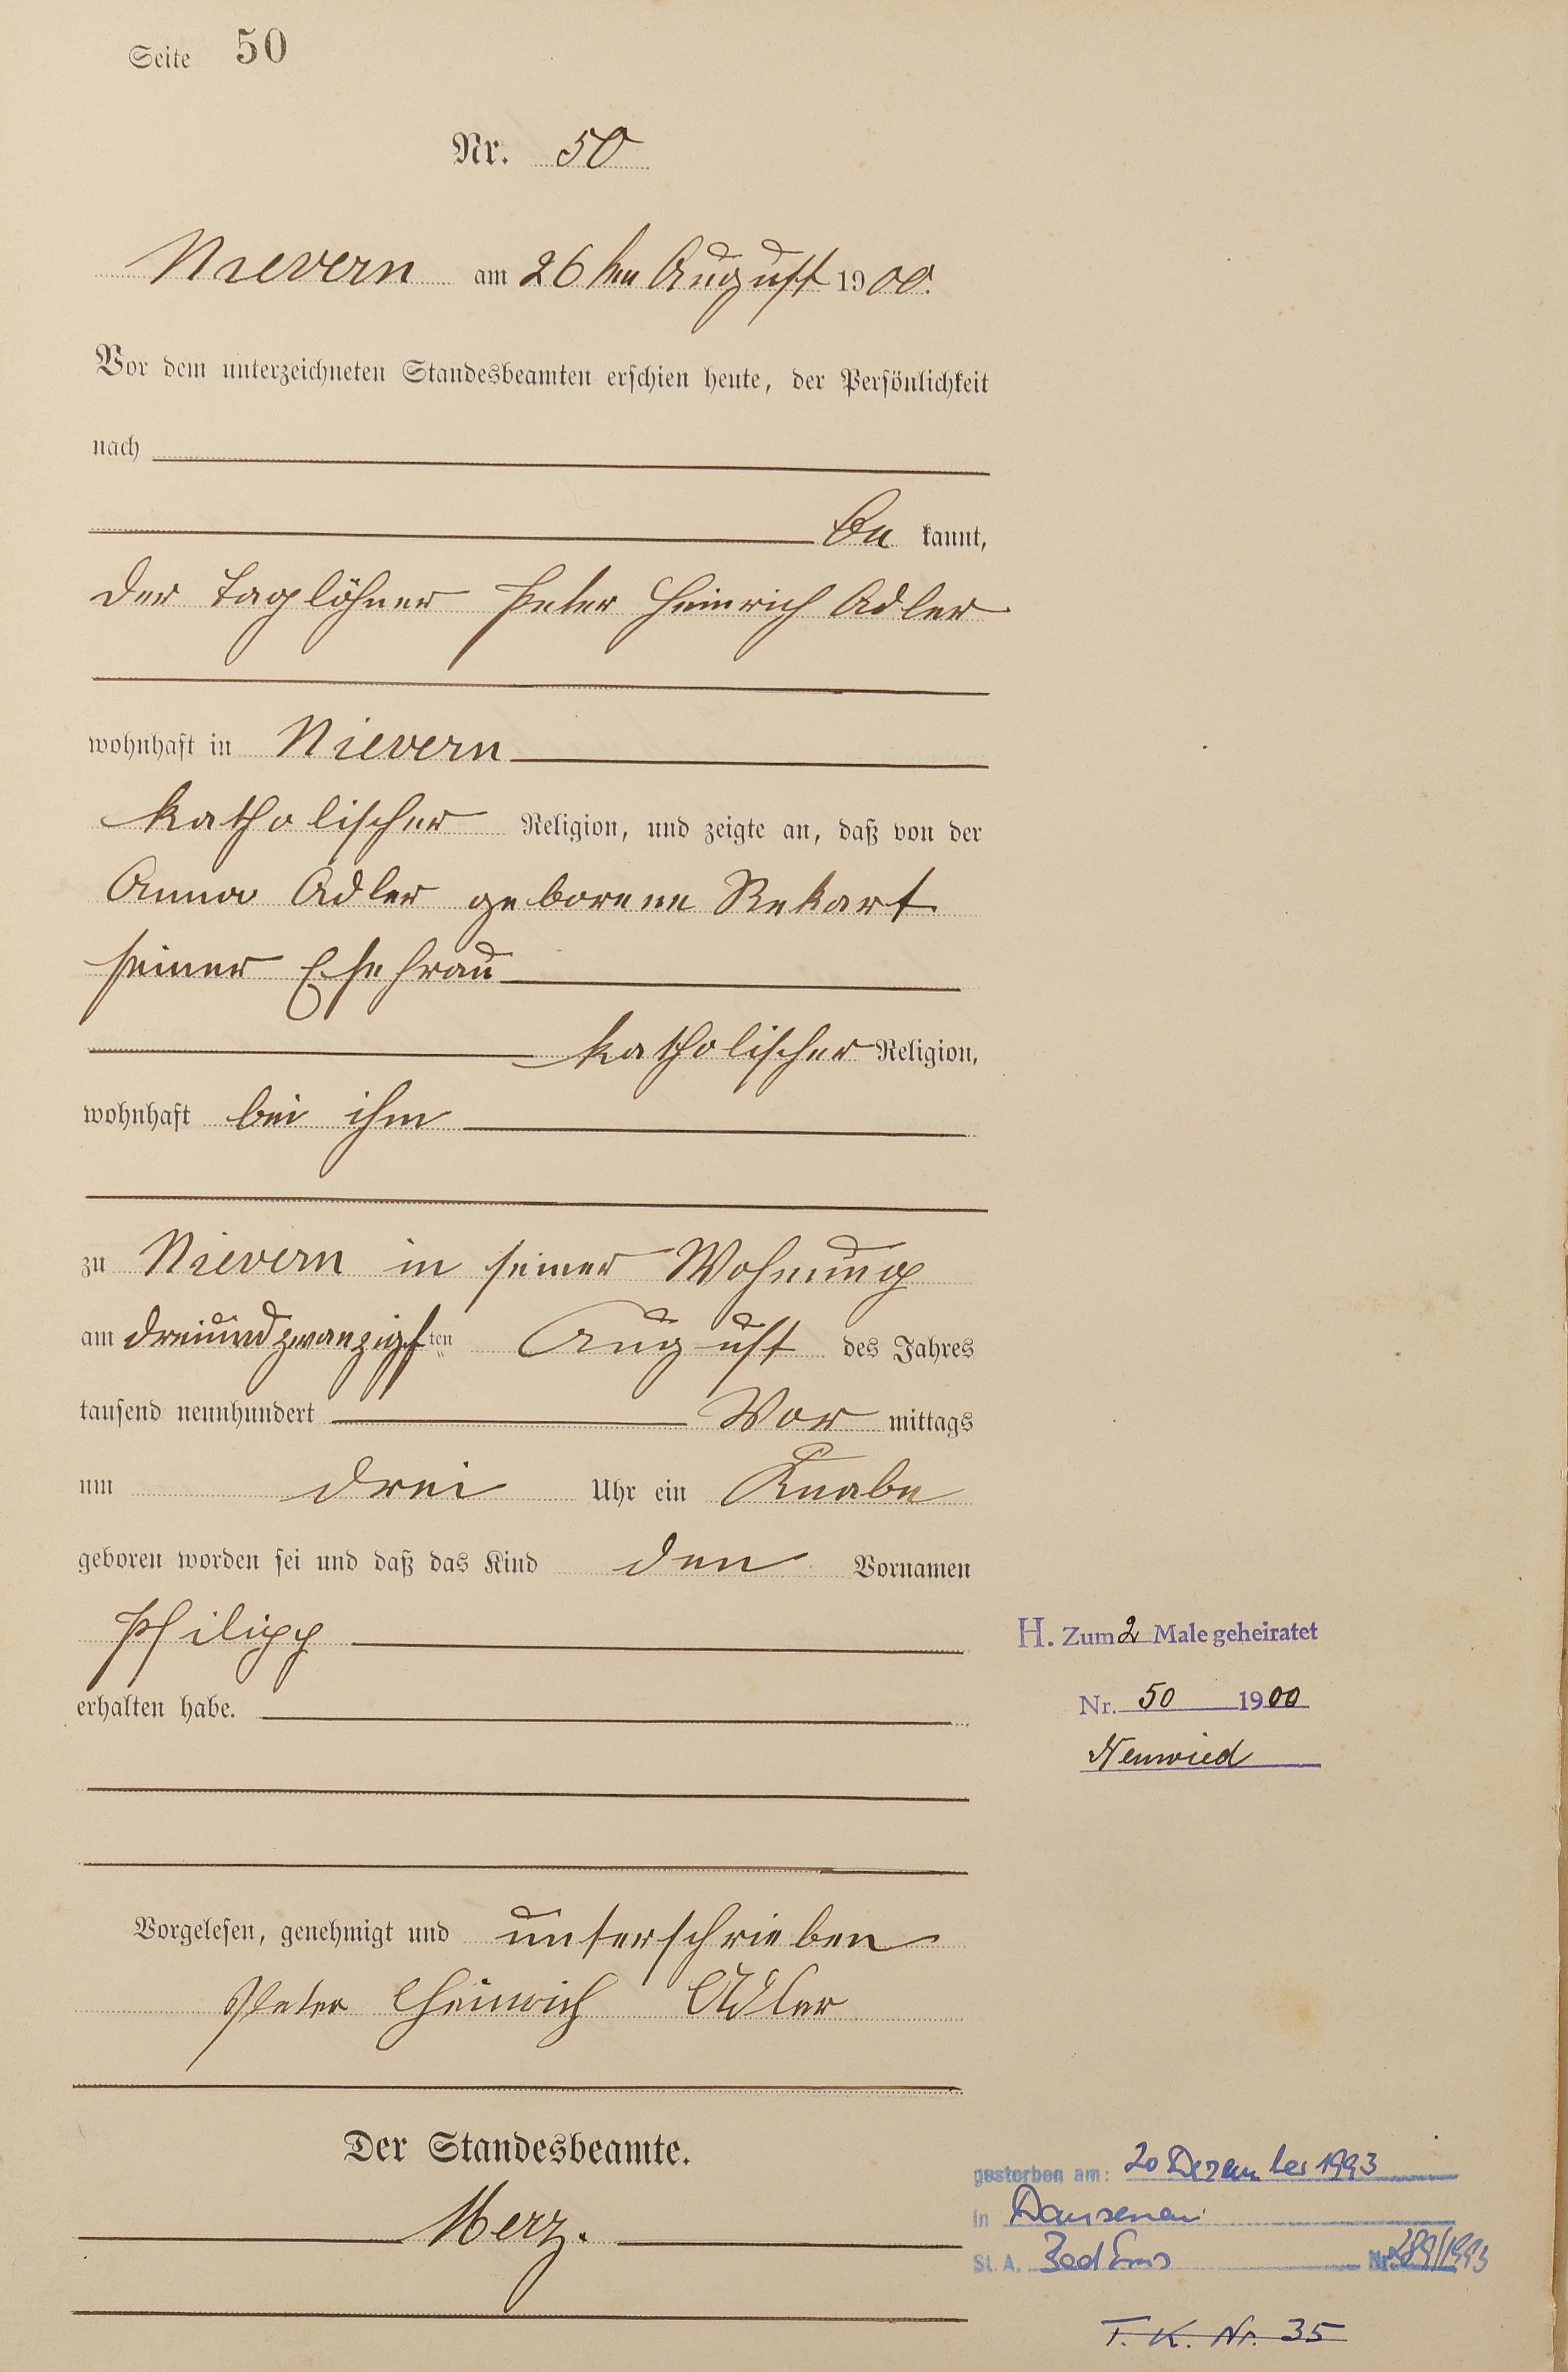 Seite 50
Nr. 50
Nievern am 26ten August 1900.
Vor dem unterzeichneten Standesbeamten erschien heute, der Persönlichkeit
nach
be kannt,
der Taglöhner Peter Heinrich Adler
wohnhaft in Nievern
katholischer Religion, und zeigte an, daß von der
Anna Adler geborene Rekart
seiner Ehefrau
katholischer Religion,
wohnhaft bei ihm
zu Nievern in seiner Wohnung
am dreiundzwanzigsten August des Jahres
tausend neunhundert Vor mittags
um drei Uhr ein Knabe
geboren worden sei und daß das Kind den Vornamen
Philipp
H. Zum 2 Male geheiratet
erhalten habe.
Nr. 50 1900
Neuwied
Vorgelesen, genehmigt und unterschrieben
Peter Heinrich Adler
Der Standesbeamte.
Merz.
gestorben am: 20 Dezember 1993
in Dausenau
St. A. Bad Ems Nr. 289/1993
T. K. Nr. 35